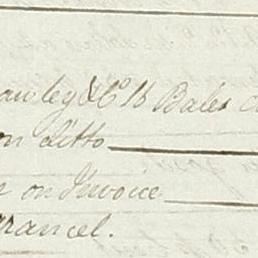 awley & Co 18 Bales
on ditto
on Invoice
rancel.